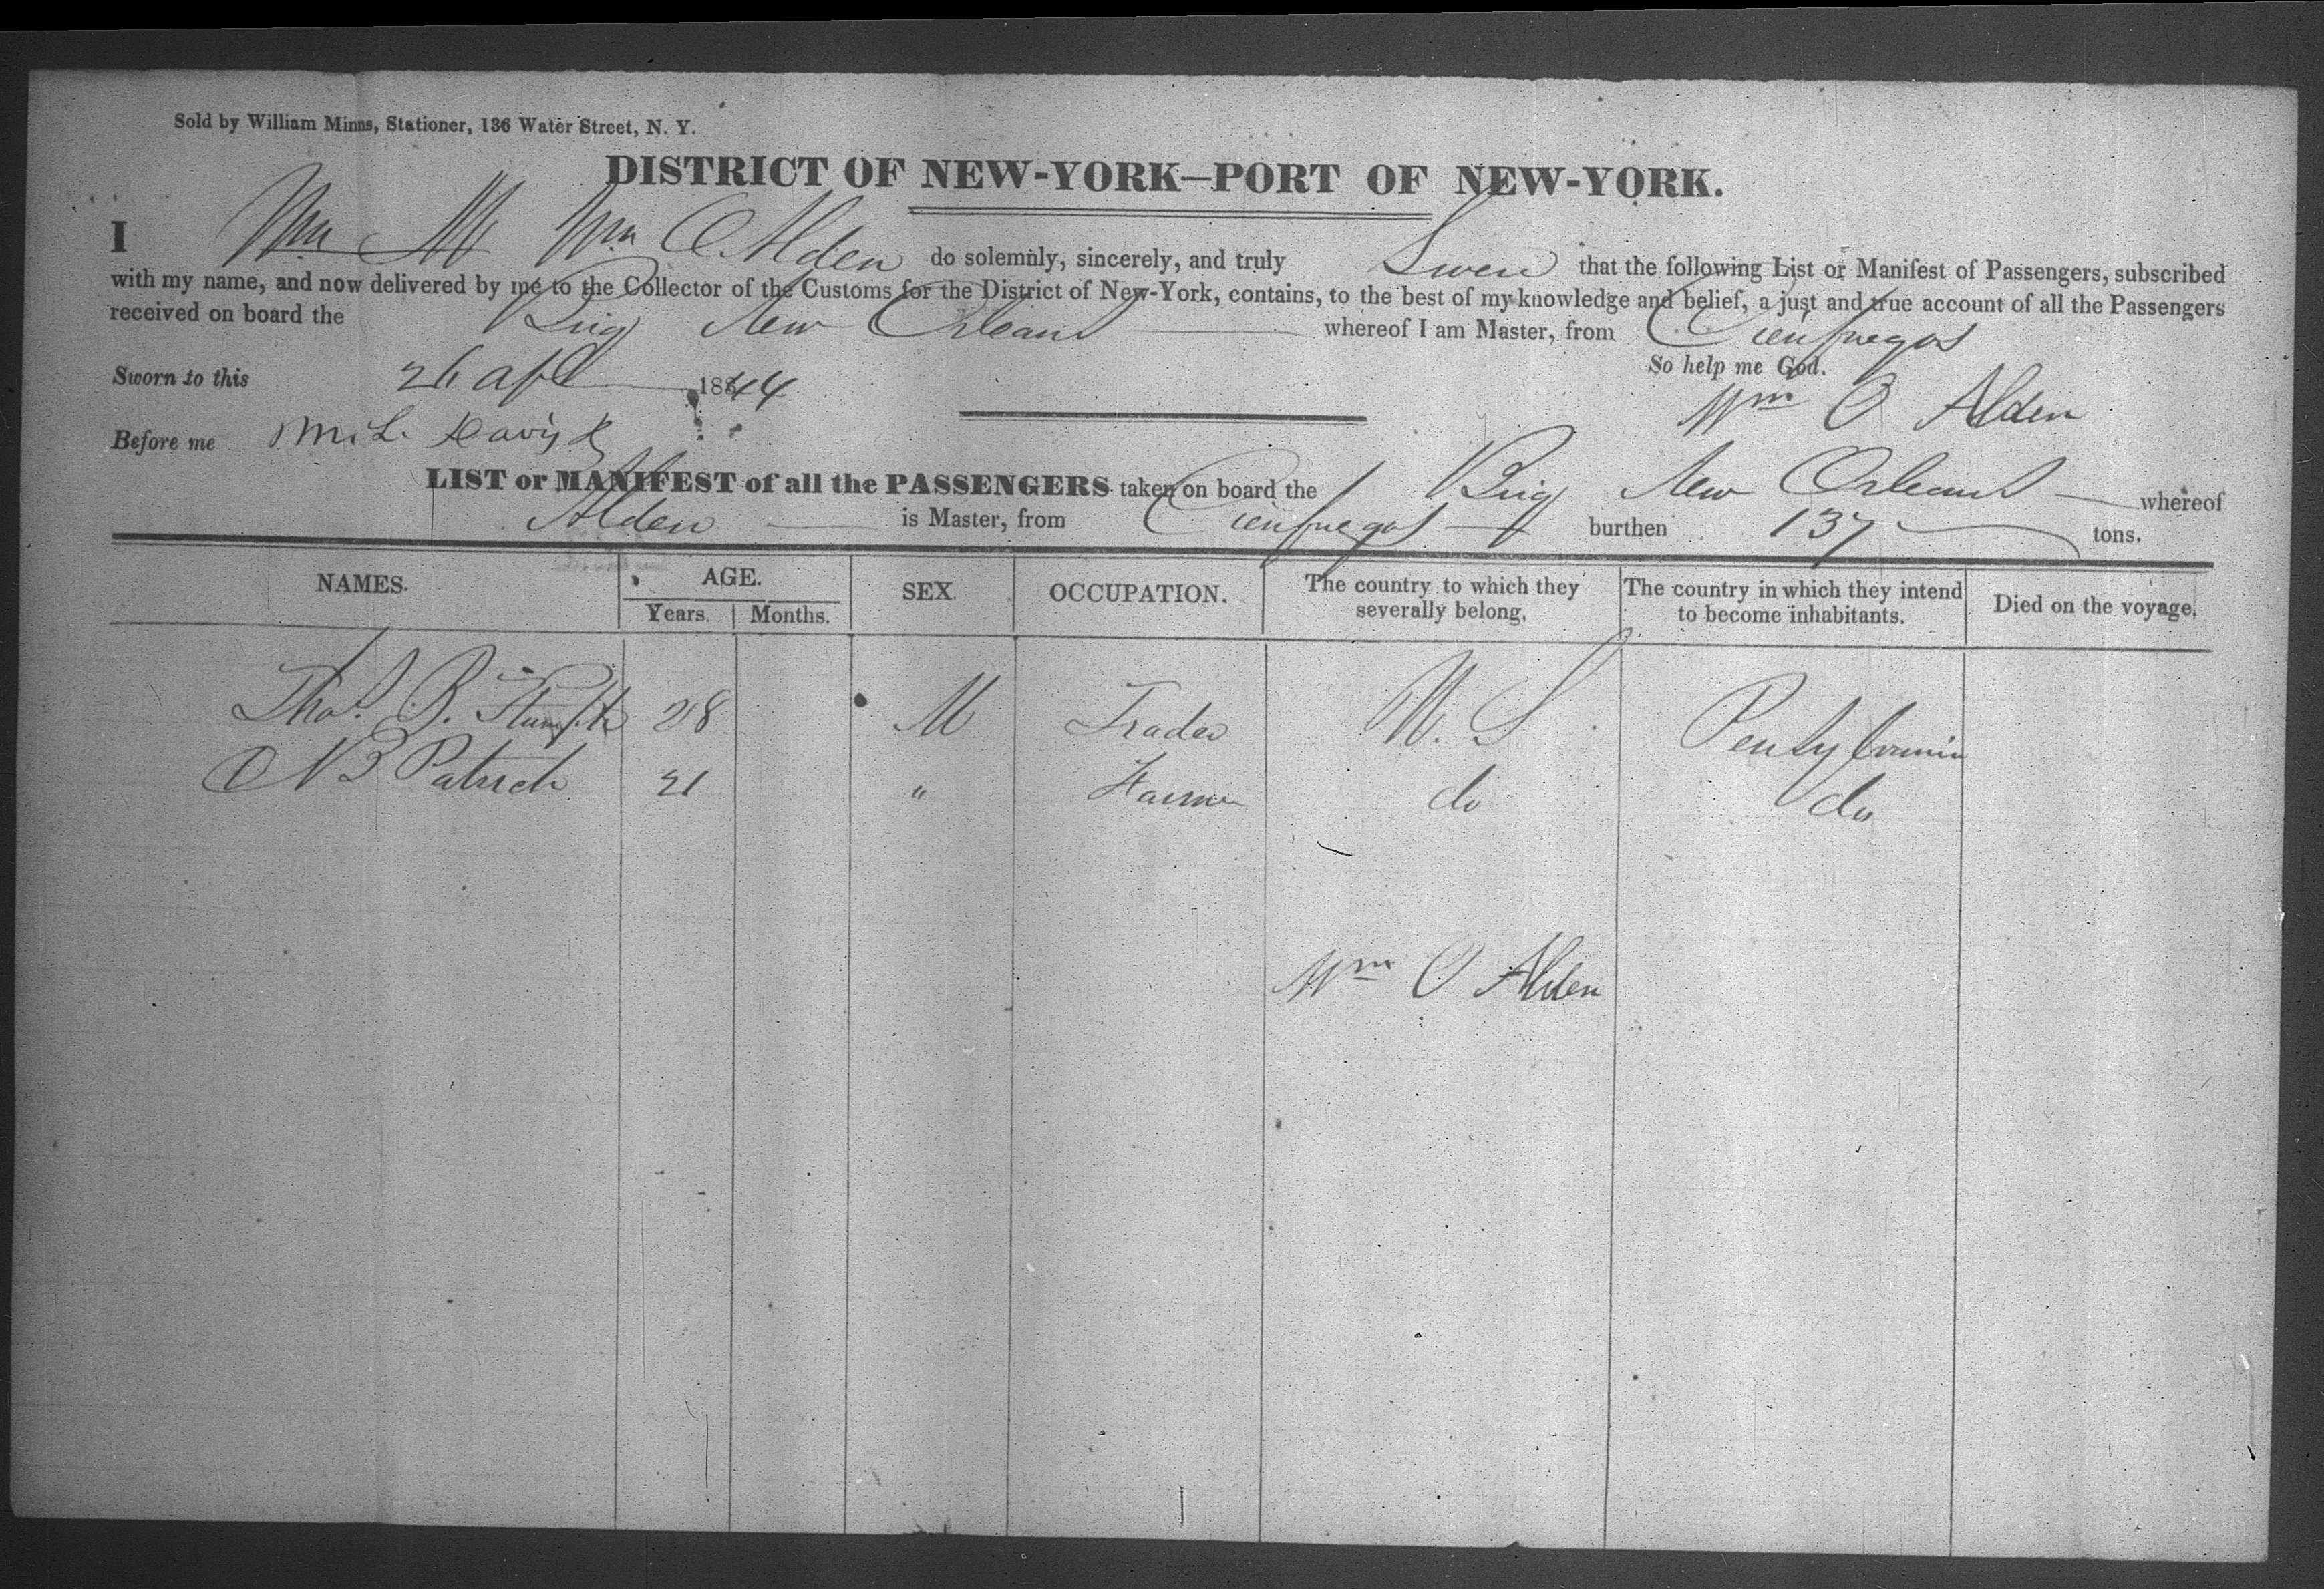 Sold by William Minns, Stationer, 136 Water Street, N. Y.
DISTRICT OF NEW-YORK—PORT OF NEW-YORK.
I Wm Wm O Alden do solemnly, sincerely, and truly Swear that the following List or Manifest of Passengers, subscribed
with my name, and now delivered by me to the Collector of the Customs for the District of New-York, contains, to the best of my knowledge and belief, a just and true account of all the Passengers
received on board the Brig New Orleans whereof I am Master, from Cienfuegos
So help me God.
Sworn to this 26 Apl 1844
Wm O Alden
Before me
LIST or MANIFEST of all the PASSENGERS taken on board the Brig New Orleans whereof
Alden is Master, from Cienfuegos burthen 137 tons.
NAMES. AGE. SEX. OCCUPATION. The country to which they severally belong. The country in which they intend to become inhabitants. Died on the voyage.
Years. Months.
Thos. B. 28 M Trader U. S Pensylvania
N B Patrick 21 " Farmer do do
Wm O Alden